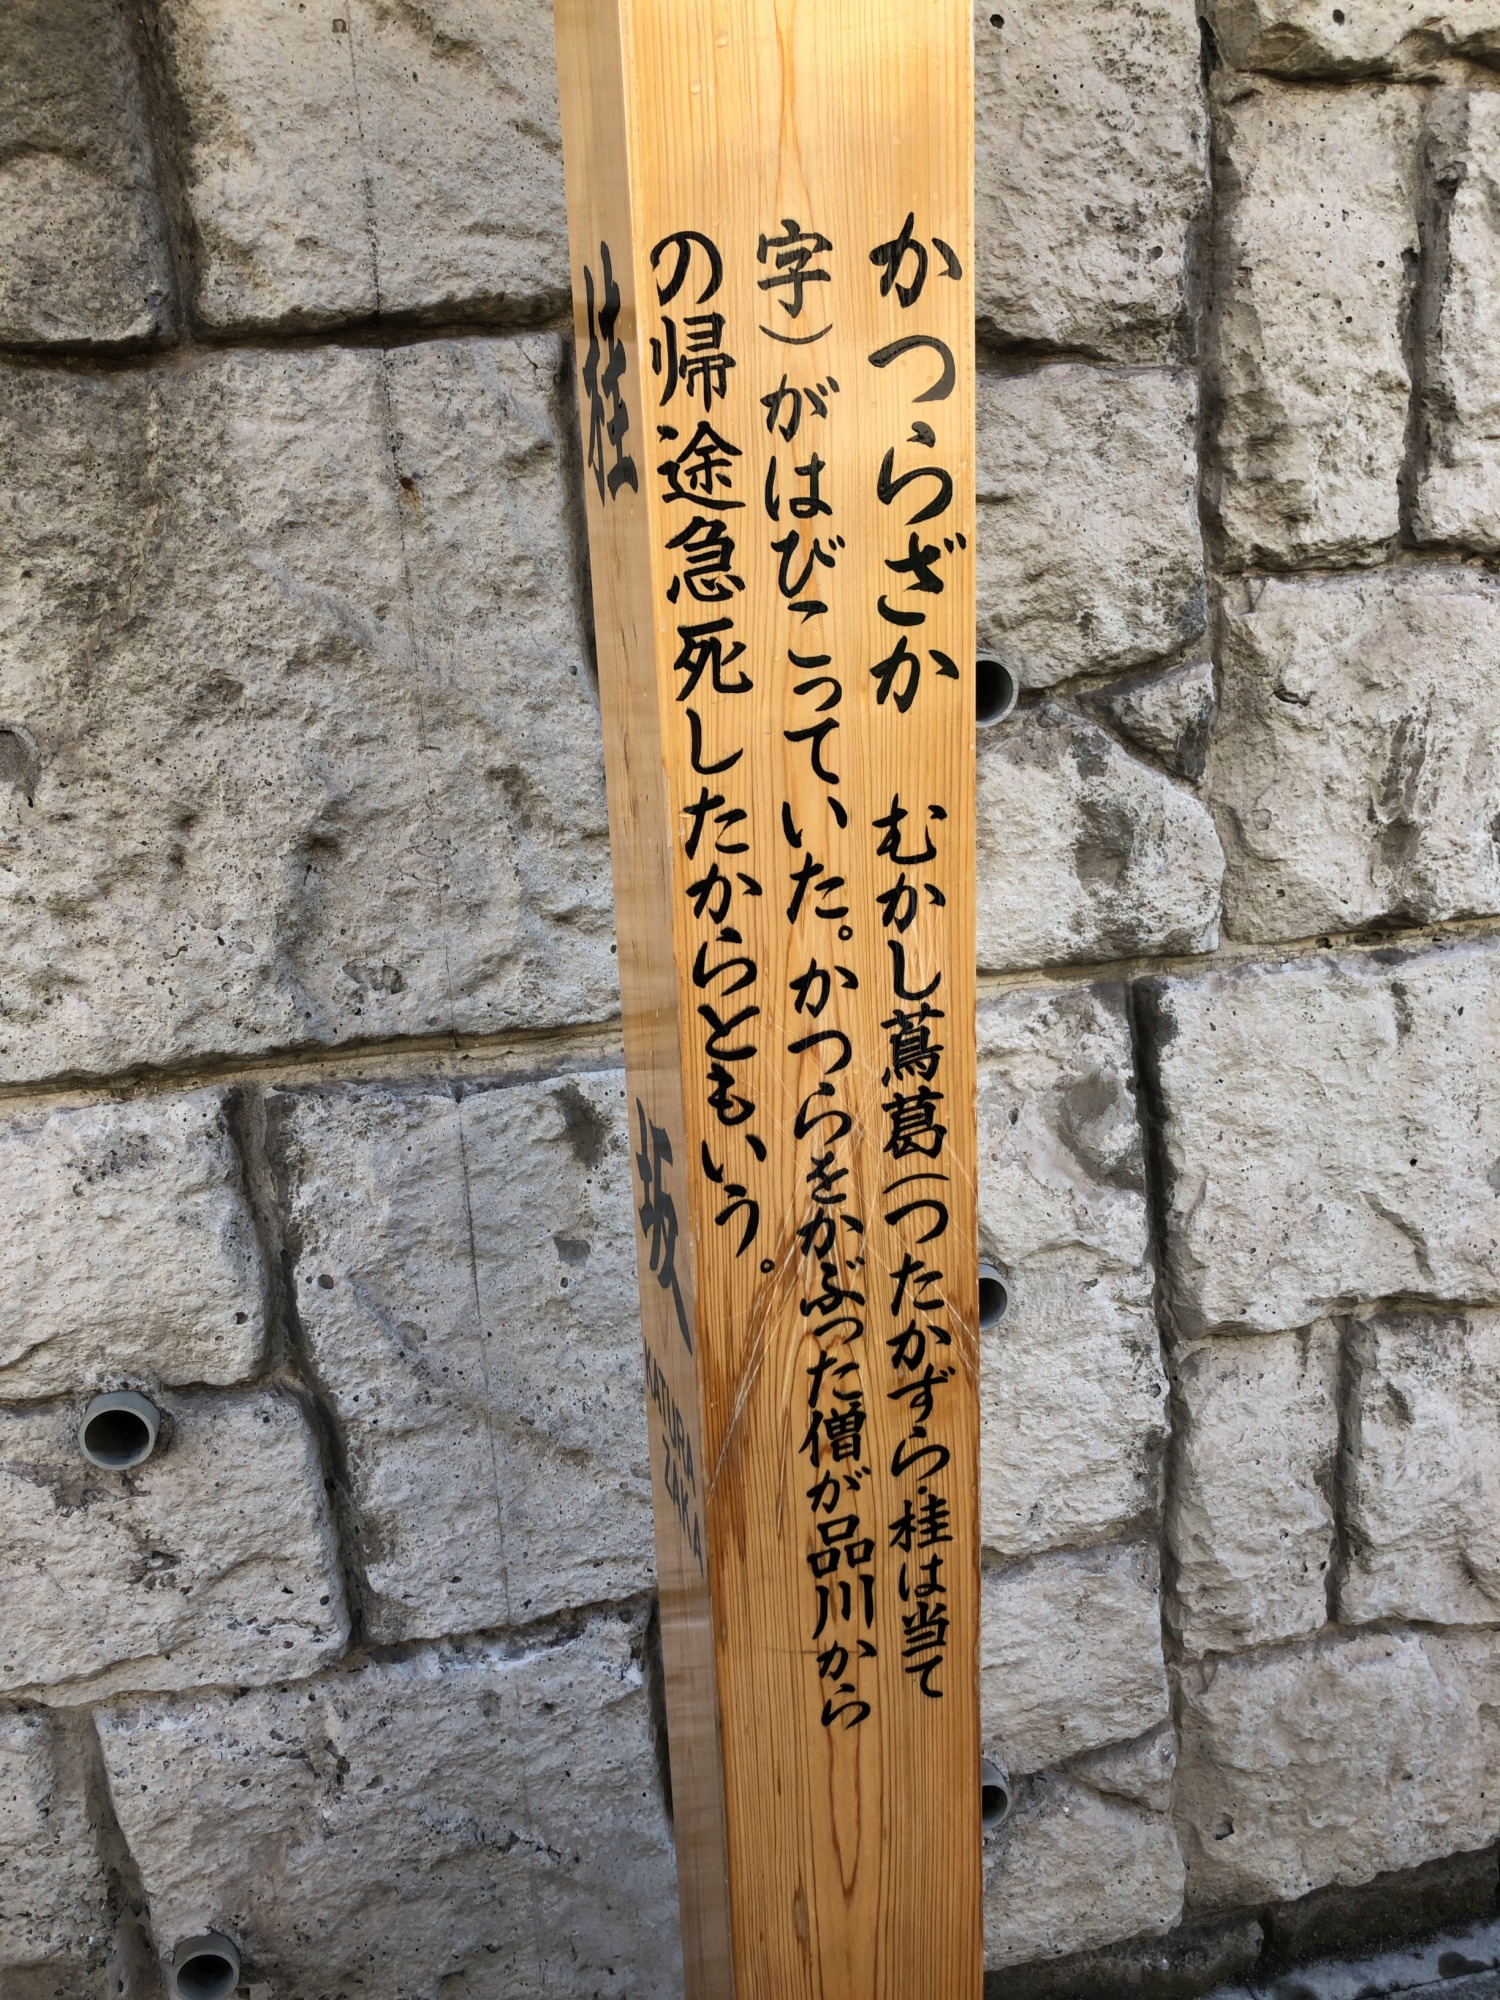 かつらざか　むかし蔦葛（つたかずら・桂は当て
字）がはびこっていた。かつらをかぶった僧が品川から
の帰途急死したからともいう。
桂坂
KATURA
ZAKA